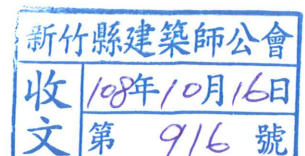 新竹縣建築師公會
收文
108年10月16日
第 916 號